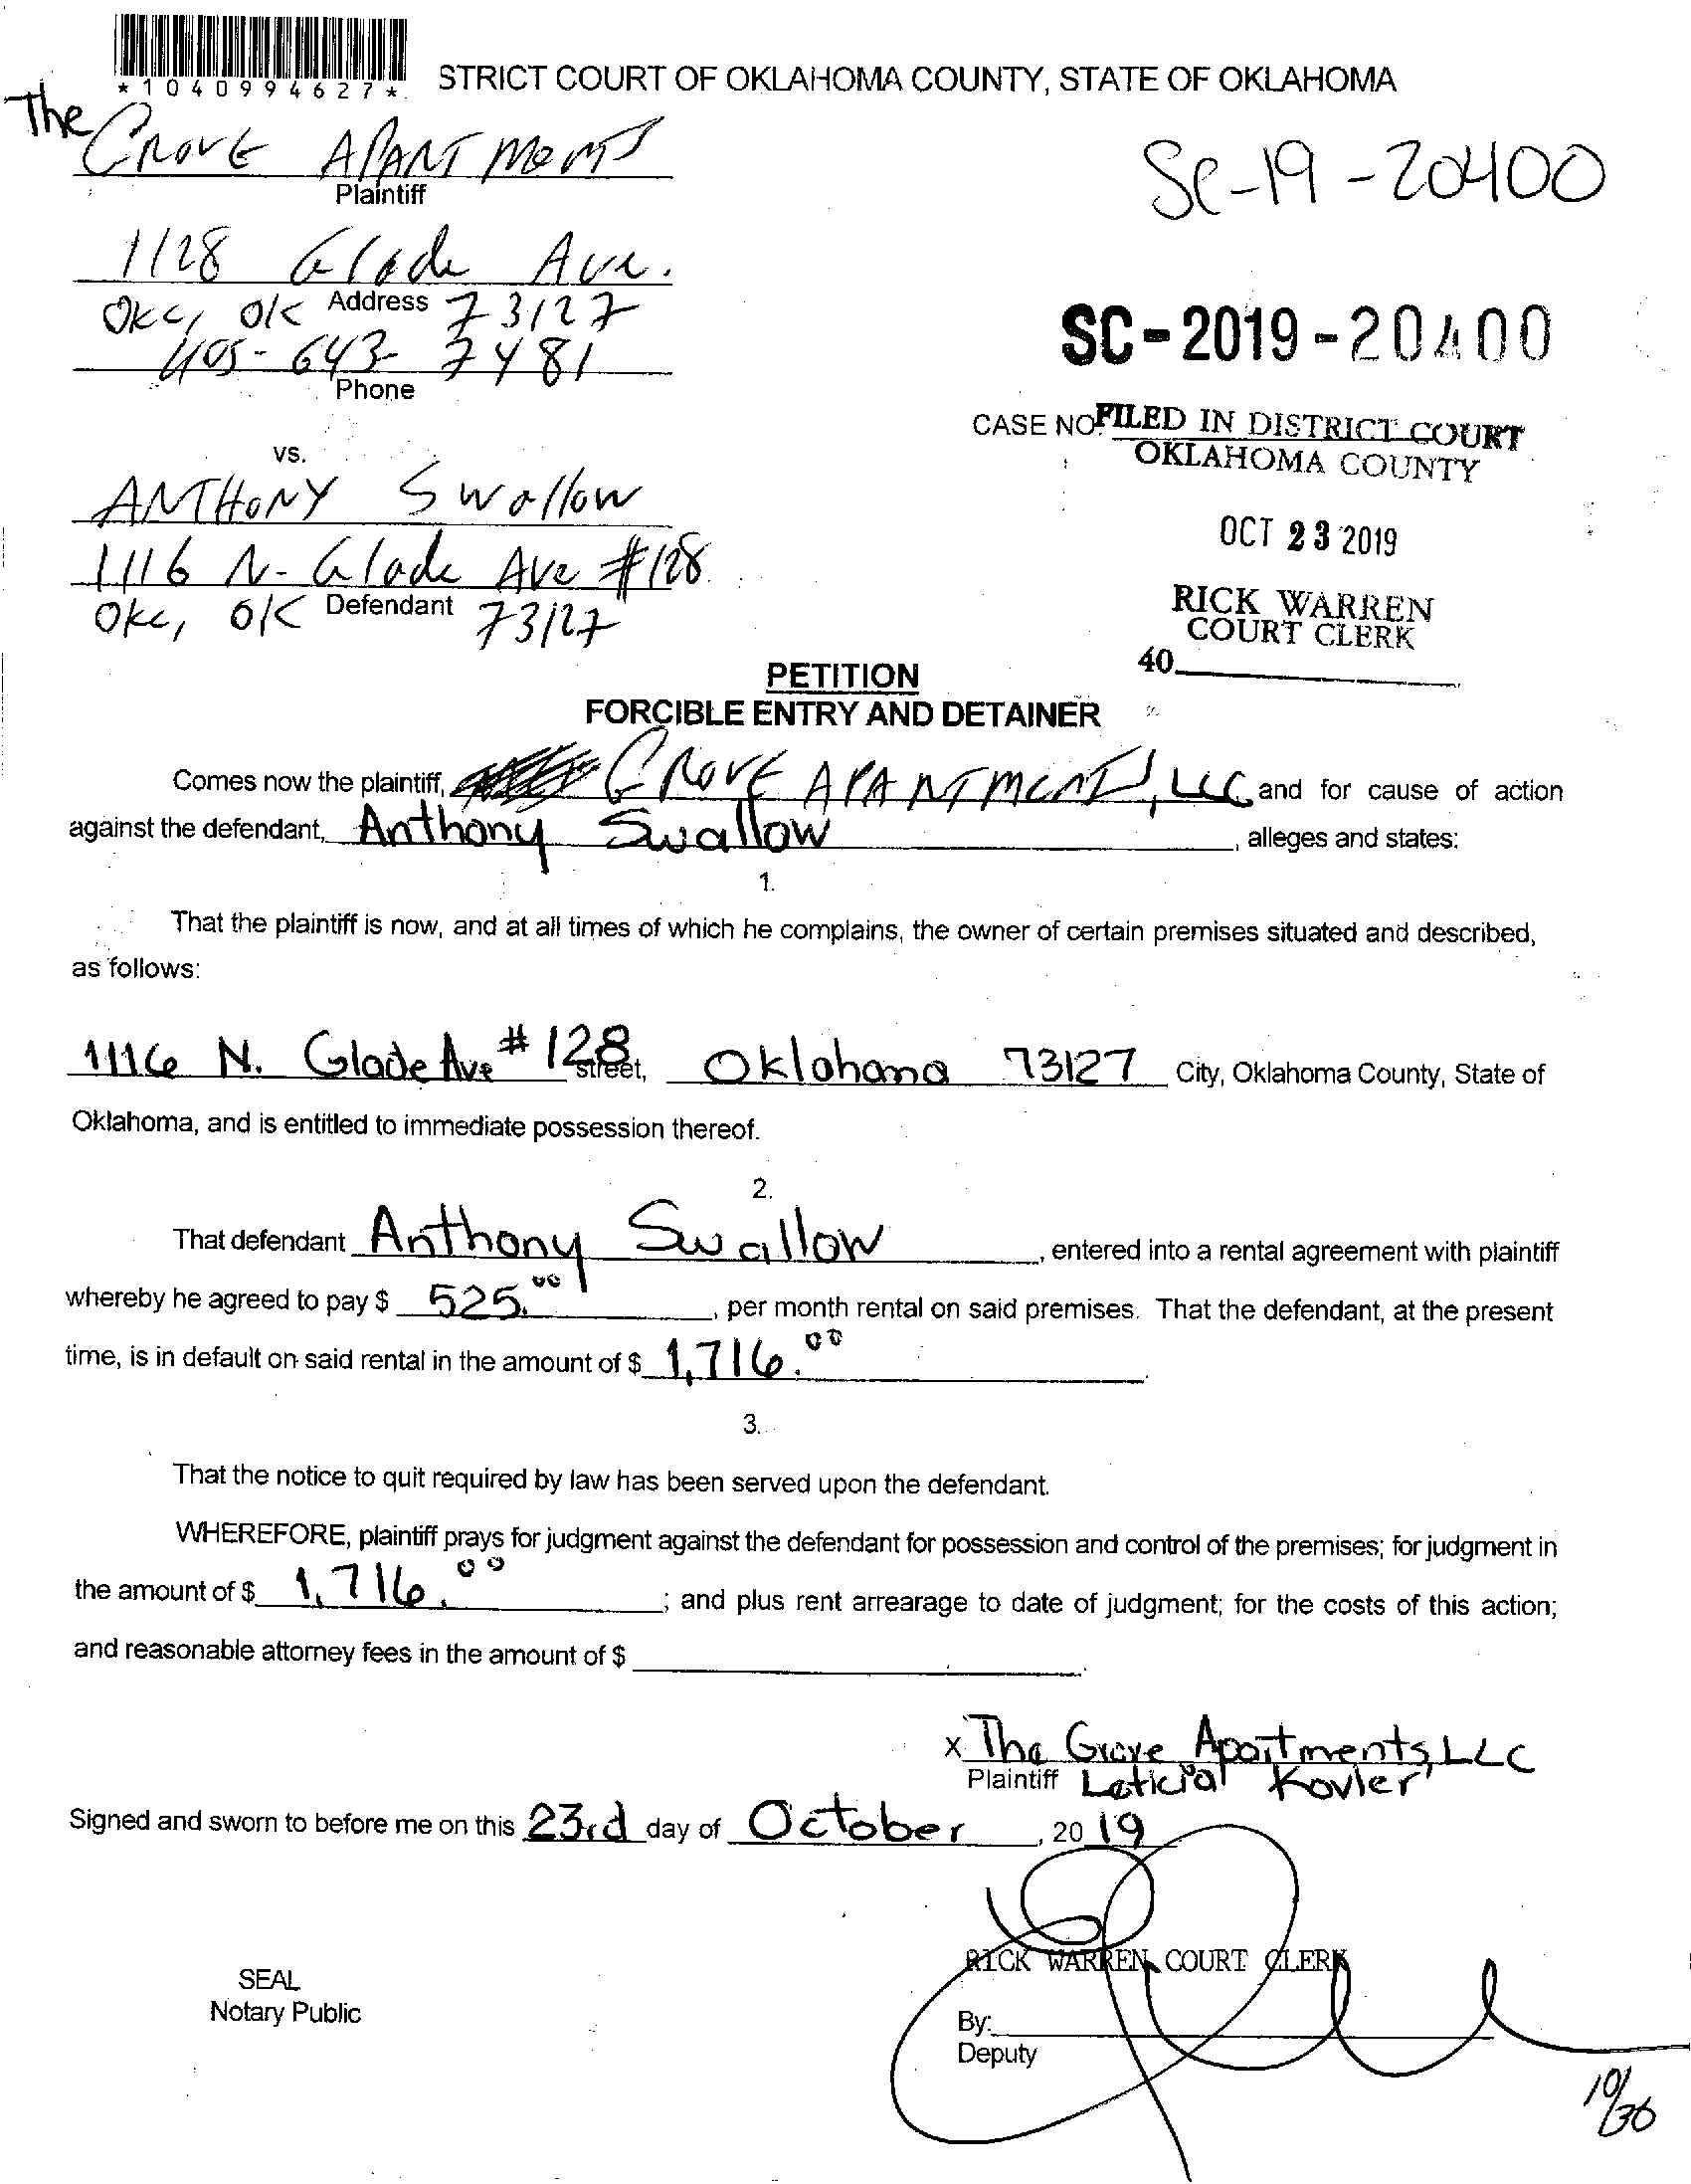 *1040994627*
STRICT COURT OF OKLAHOMA COUNTY, STATE OF OKLAHOMA
The GROVE APARTMENTS
Plaintiff
SC-19-20400
1128 Glade Ave.
Address
OKC, OK 73127
405-643-7481
Phone
SC-2019-20400
CASE NO.
FILED IN DISTRICT COURT
OKLAHOMA COUNTY
OCT 23 2019
RICK WARREN
COURT CLERK
40
vs.
ANTHONY Swallow
1116 N. Glade Ave #128
Defendant
OKC, OK 73127
PETITION
FORCIBLE ENTRY AND DETAINER
Comes now the plaintiff, GROVE APARTMENTS, LLC and for cause of action
against the defendant, Anthony Swallow, alleges and states:
1.
That the plaintiff is now, and at all times of which he complains, the owner of certain premises situated and described,
as follows:
1116 N. Glade Ave #128 street, Oklahoma 73127 City, Oklahoma County, State of
Oklahoma, and is entitled to immediate possession thereof.
2.
That defendant Anthony Swallow, entered into a rental agreement with plaintiff
whereby he agreed to pay $ 525.00, per month rental on said premises. That the defendant, at the present
time, is in default on said rental in the amount of $ 1,716.00.
3.
That the notice to quit required by law has been served upon the defendant.
WHEREFORE, plaintiff prays for judgment against the defendant for possession and control of the premises; for judgment in
the amount of $ 1,716.00; and plus rent arrearage to date of judgment; for the costs of this action;
and reasonable attorney fees in the amount of $
x The Grove Apartments, LLC
Plaintiff Leticia Kovler
Signed and sworn to before me on this 23rd day of October, 2019
RICK WARREN, COURT CLERK
SEAL
Notary Public
By:
Deputy
10/30